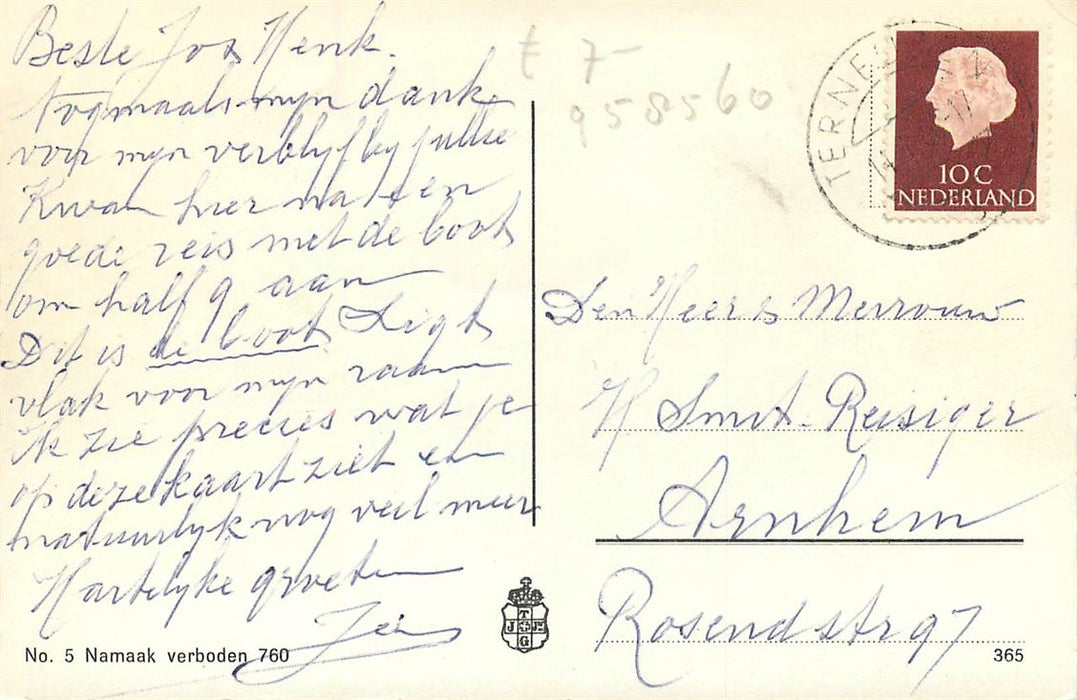 Beste Jos Henk.
nogmaals mijn dank
voor mijn verblijf bij jullie
Kwam hier na een
goede reis met de boot
om half 9 aan
Dit is de boot Ligt
vlak voor mijn raam
Ik zie precies wat je
op deze kaart ziet en
natuurlijk nog veel meer
Hartelijke groeten
No. 5 Namaak verboden 760
£ 7-
958560
TERNEUZEN
10 C
NEDERLAND
Den Heer & Mevrouw
H Smit-Reisiger
Arnhem
Rosendstr 97
T
J J=
G
365